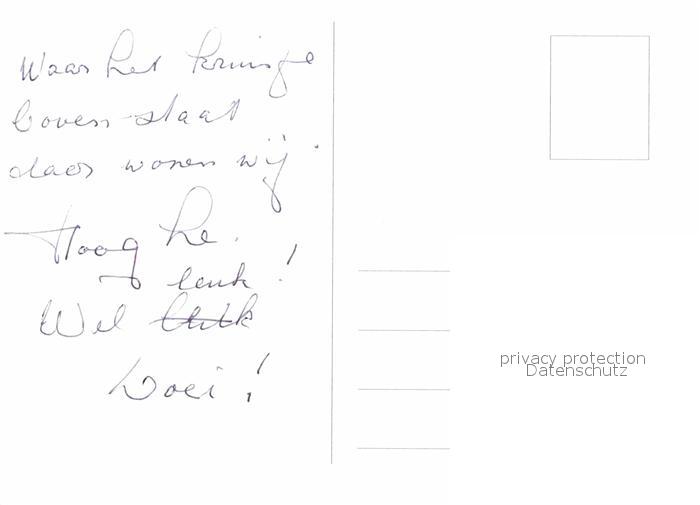 Waar het kruisje
boven staat
daar wonen wij.
Hoog he.
leuk!
Wel leuk
Doei!
privacy protection
Datenschutz